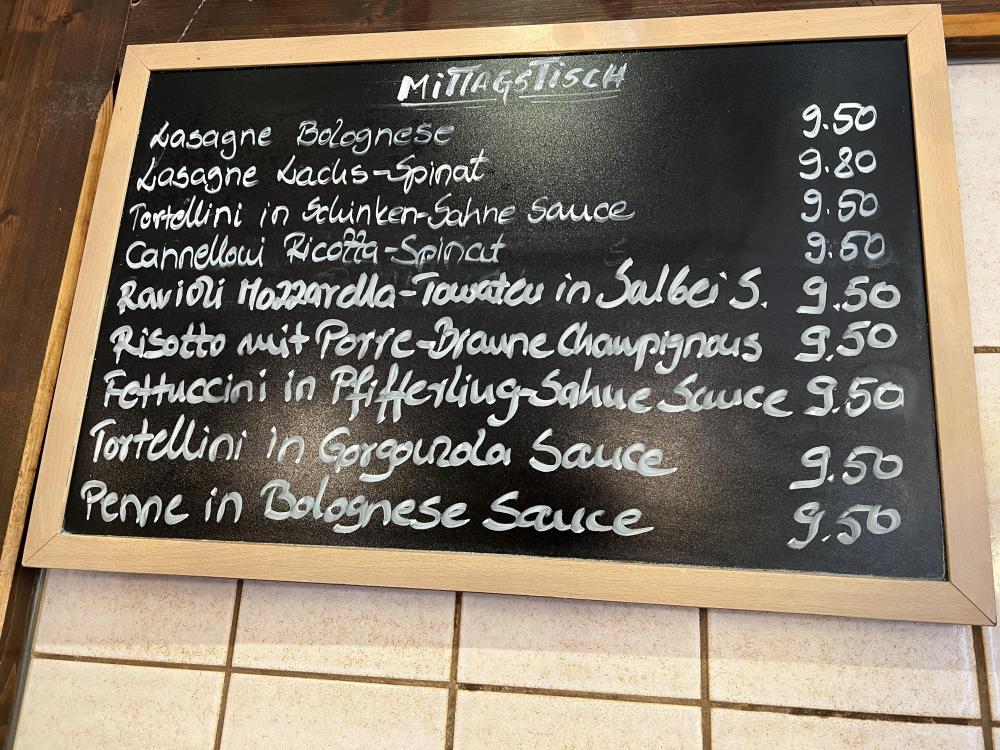 MITTAGSTISCH
Lasagne Bolognese 9.50
Lasagne Lachs-Spinat 9.80
Tortellini in Schinken-Sahne Sauce 9.50
Cannelloni Ricotta-Spinat 9.50
Ravioli Mozzarella-Tomaten in Salbei S. 9.50
Risotto mit Porre-Braune Champignons 9.50
Fettuccini in Pfifferling-Sahne Sauce 9.50
Tortellini in Gorgonzola Sauce 9.50
Penne in Bolognese Sauce 9.50